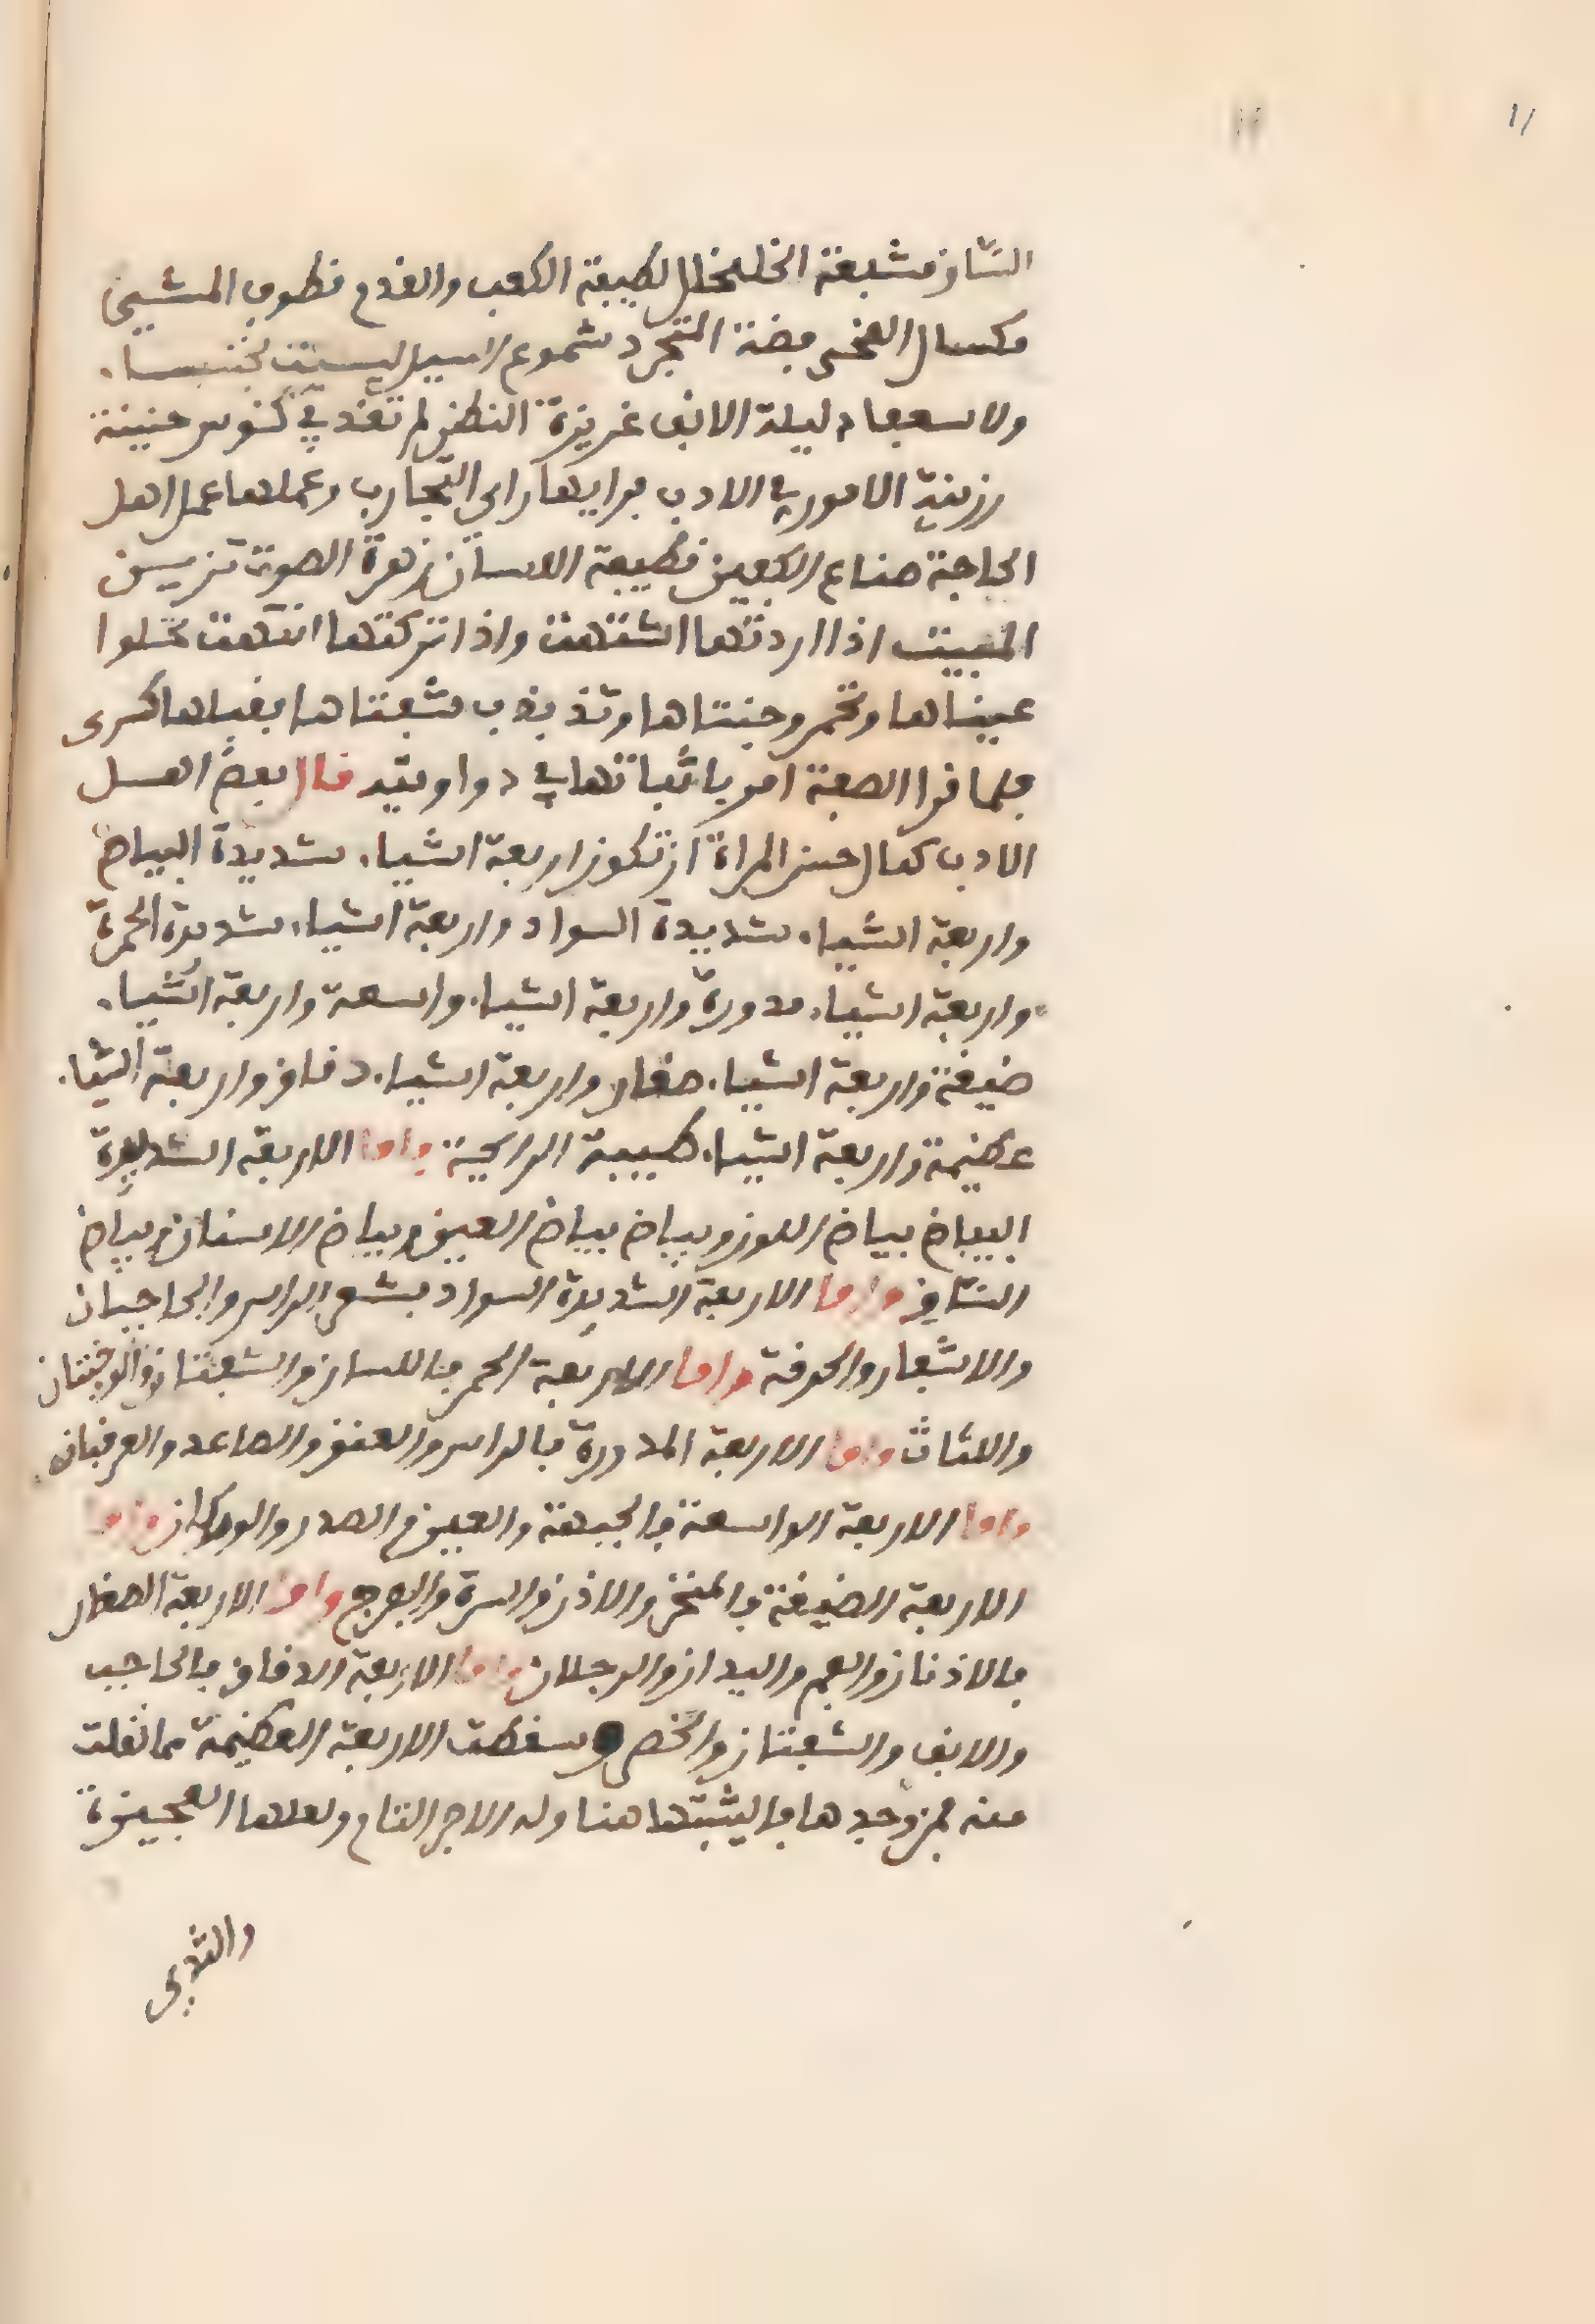 ١١
الساق مشبعة الخلخال لطيفة الكعب والقدم قطوف المشي
مكسال الضحى بضة المتجرد شموع السيد ليست بخنساء
ولا سعفاء ذليلة الانف عزيزة النظر لم تغذ في بوس حيية
رزينة الامور في الادب برايها راي التجارب وعملها عمل اهل
الحاجة صناع الكفين قطيعة اللسان زهرة الصوت تزين
البيت اذا اردتها اشتهت واذا تركتها انتهت تحملوا
عيناها وتحمر وجنتاها وتذبذب شفتاها بقبلها كسرى
فلما قرا الصفة امر باثباتها في دواوينه قال بعض اهل
الادب كمال حسن المراة ان تكون اربعة اشياء شديدة البياض
واربعة اشياء شديدة السواد واربعة اشياء شديدة الحمرة
واربعة اشياء مدورة واربعة اشياء واسعة واربعة اشياء
ضيقة واربعة اشياء صغار واربعة اشياء دقاق واربعة اشياء
عظيمة واربعة اشياء طيبة الرايحة واما الاربعة الشديدة
البياض بياض اللون وبياض بياض العين وبياض الاسنان وبياض
الساق واما الاربعة الشديدة السواد بشعر الراس والحاجبان
والاشفار والحدقة واما الاربعة الحمر فاللسان والشفتان والوجنتان
واللثاث واما الاربعة المدورة فالراس والعنق والساعد والعرقبان
واما الاربعة الواسعة فالجبهة والعين والصدر والوركان واما
الاربعة الضيقة فالمنخر والاذن والسرة والفرج واما الاربعة الصغار
فالاذنان والفم واليدان والرجلان واما الاربعة الدقاق فالحاجب
والانف والشفتان والخصر وسقطت الاربعة العظيمة مما نقلت
منه فمن وجدها فاليثبتها هنا وله الاجر التام ولعلها العجيزة
والثدي